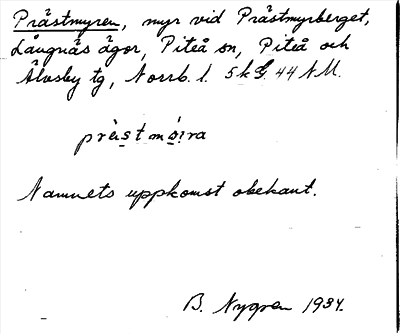 Prästmyren, myr vid Prästmyrberget,
Långnäs ägor, Piteå sn, Piteå och
Älvsby tg, Norrb. l. 44 NM.
Namnets uppkomst obekant.
B. Nygren 1934.